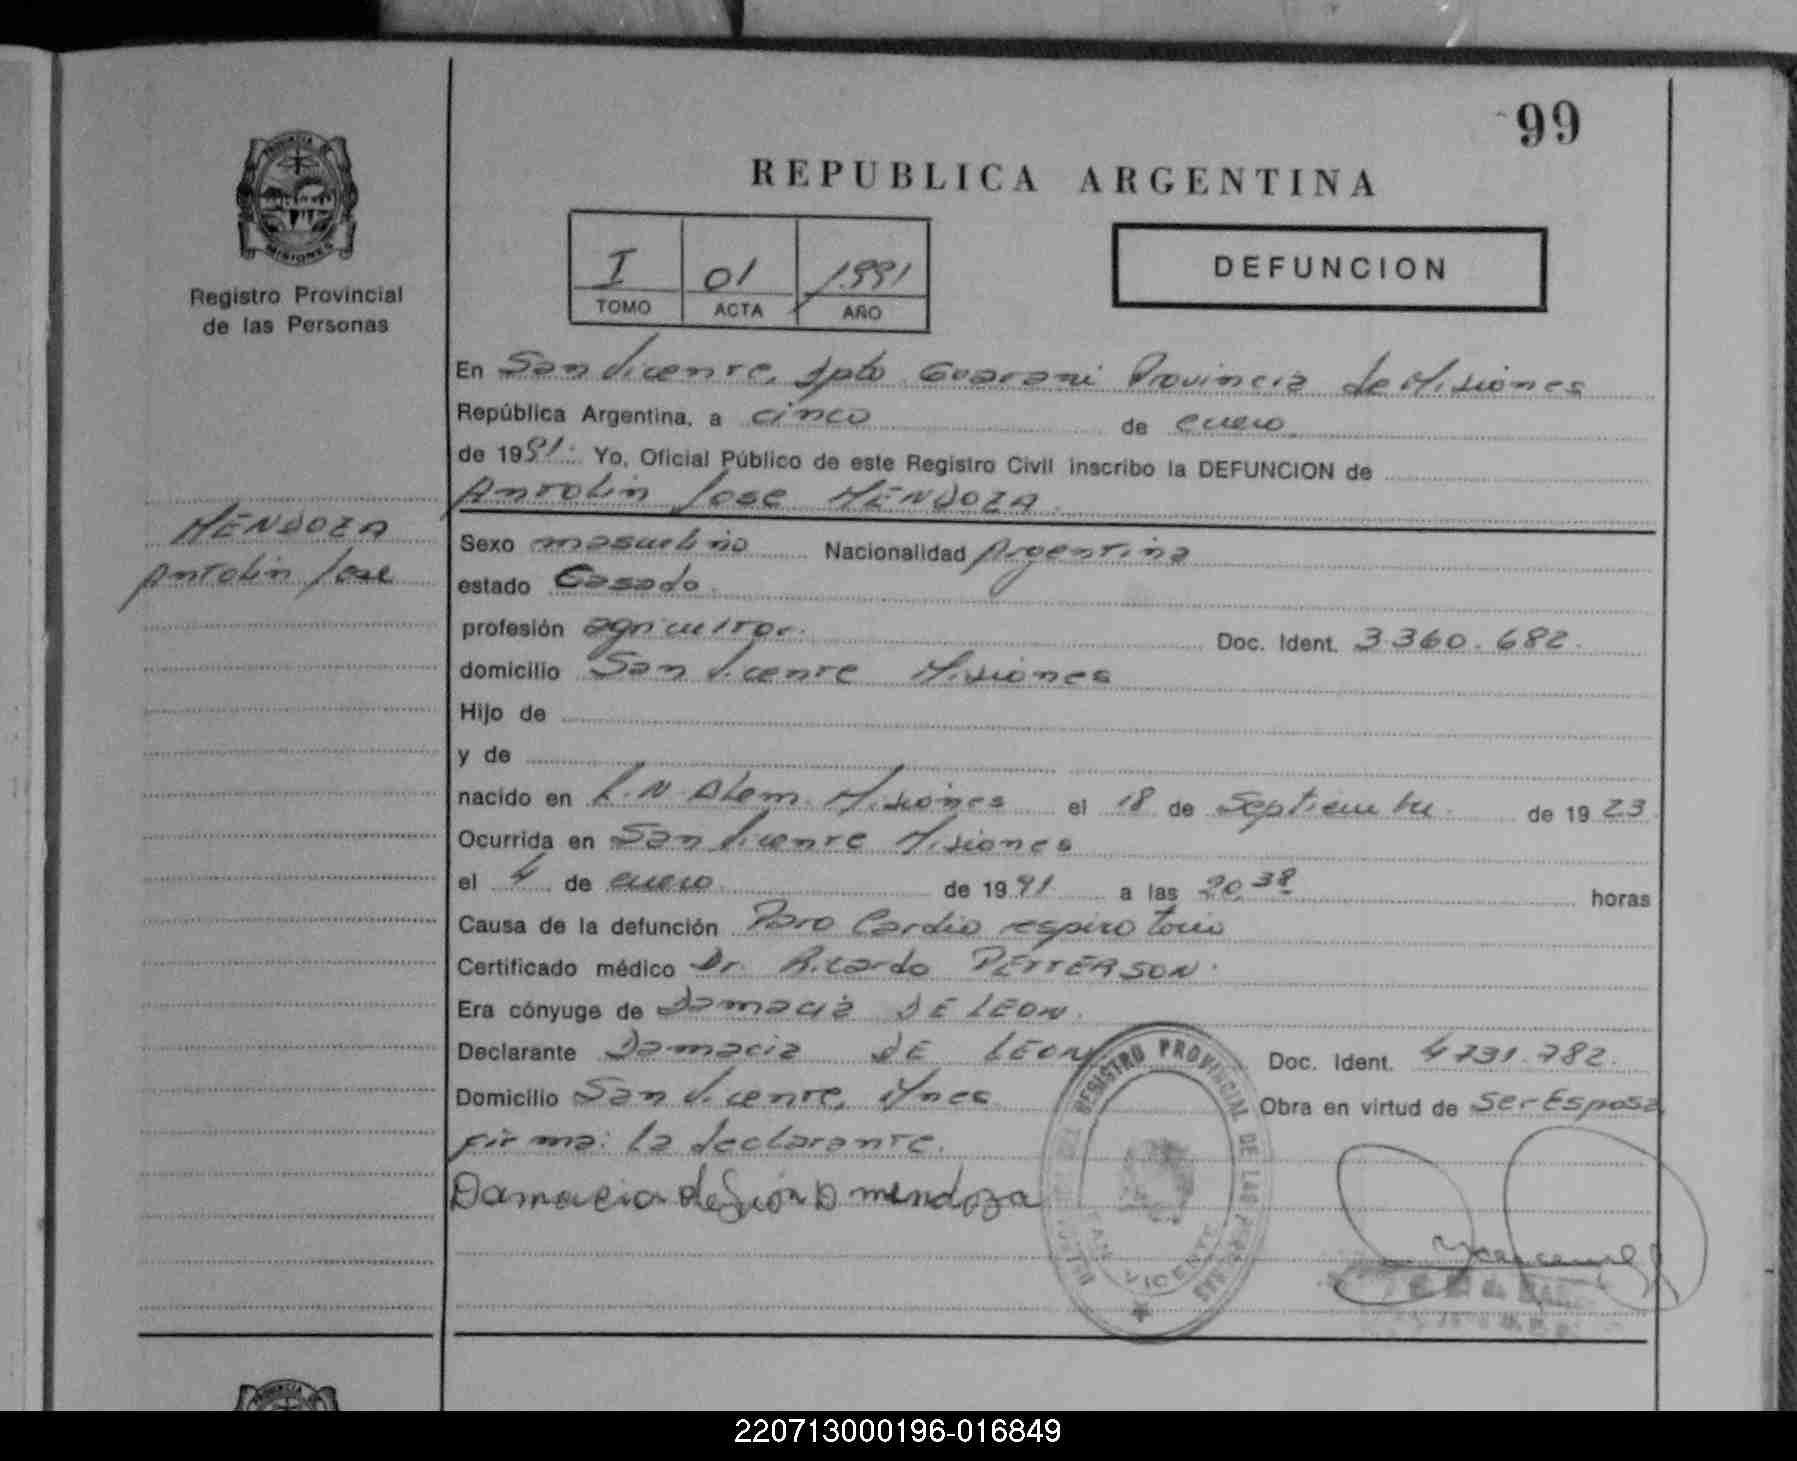 99
REPUBLICA ARGENTINA
PROVINCIA DE
MISIONES
Registro Provincial
de las Personas
I 01 1991
TOMO ACTA AÑO
DEFUNCION
En San Vicente, dpto Guarani Provincia de Misiones
República Argentina, a cinco de enero
de 1991. Yo, Oficial Público de este Registro Civil inscribo la DEFUNCION de
Antolin Jose MENDOZA.
MENDOZA
Antolin Jose
Sexo masculino Nacionalidad Argentina
estado Casado.
profesión agricultor. Doc. Ident. 3.360.682.
domicilio San Vicente Misiones
Hijo de
y de
nacido en L.N. Alem Misiones el 18 de Septiembre. de 1923
Ocurrida en San Vicente Misiones
el 4 de enero de 1991 a las 20,38 horas
Causa de la defunción Paro Cardio respiratorio
Certificado médico Dr. Ricardo PETTERSON.
Era cónyuge de Damacia DE LEON.
Declarante Damacia DE LEON Doc. Ident. 4731.782.
Domicilio San Vicente, Mnes Obra en virtud de Ser Esposa
firma: la declarante.
Damacia de León D mendoza
REGISTRO PROVINCIAL DE LAS PERSONAS
SAN VICENTE
PROVINCIA DE
220713000196-016849